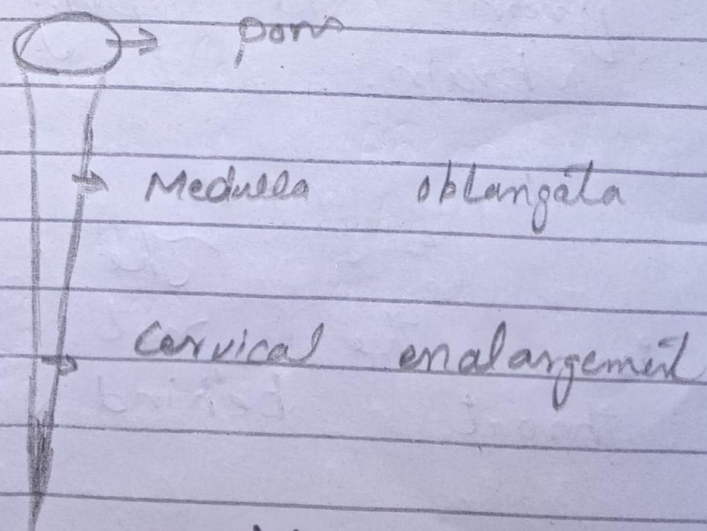 pons
Medulla oblangata
Cervical enalargement